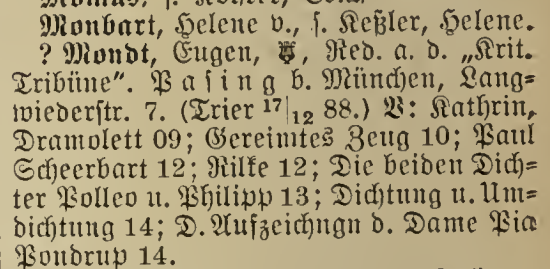 Monbart, Helene v., s. Keßler, Helene.
? Mondt, Eugen, Red. a. d. „Krit.
Tribüne“. Pasing b. München, Lang=
wiederstr. 7. (Trier 17|12 88.) V: Kathrin,
Dramolett 09; Gereimtes Zeug 10; Paul
Scheerbart 12; Rilke 12; Die beiden Dich=
ter Polleo u. Philipp 13; Dichtung u. Um=
dichtung 14; D. Aufzeichngn d. Dame Pia
Pondrup 14.